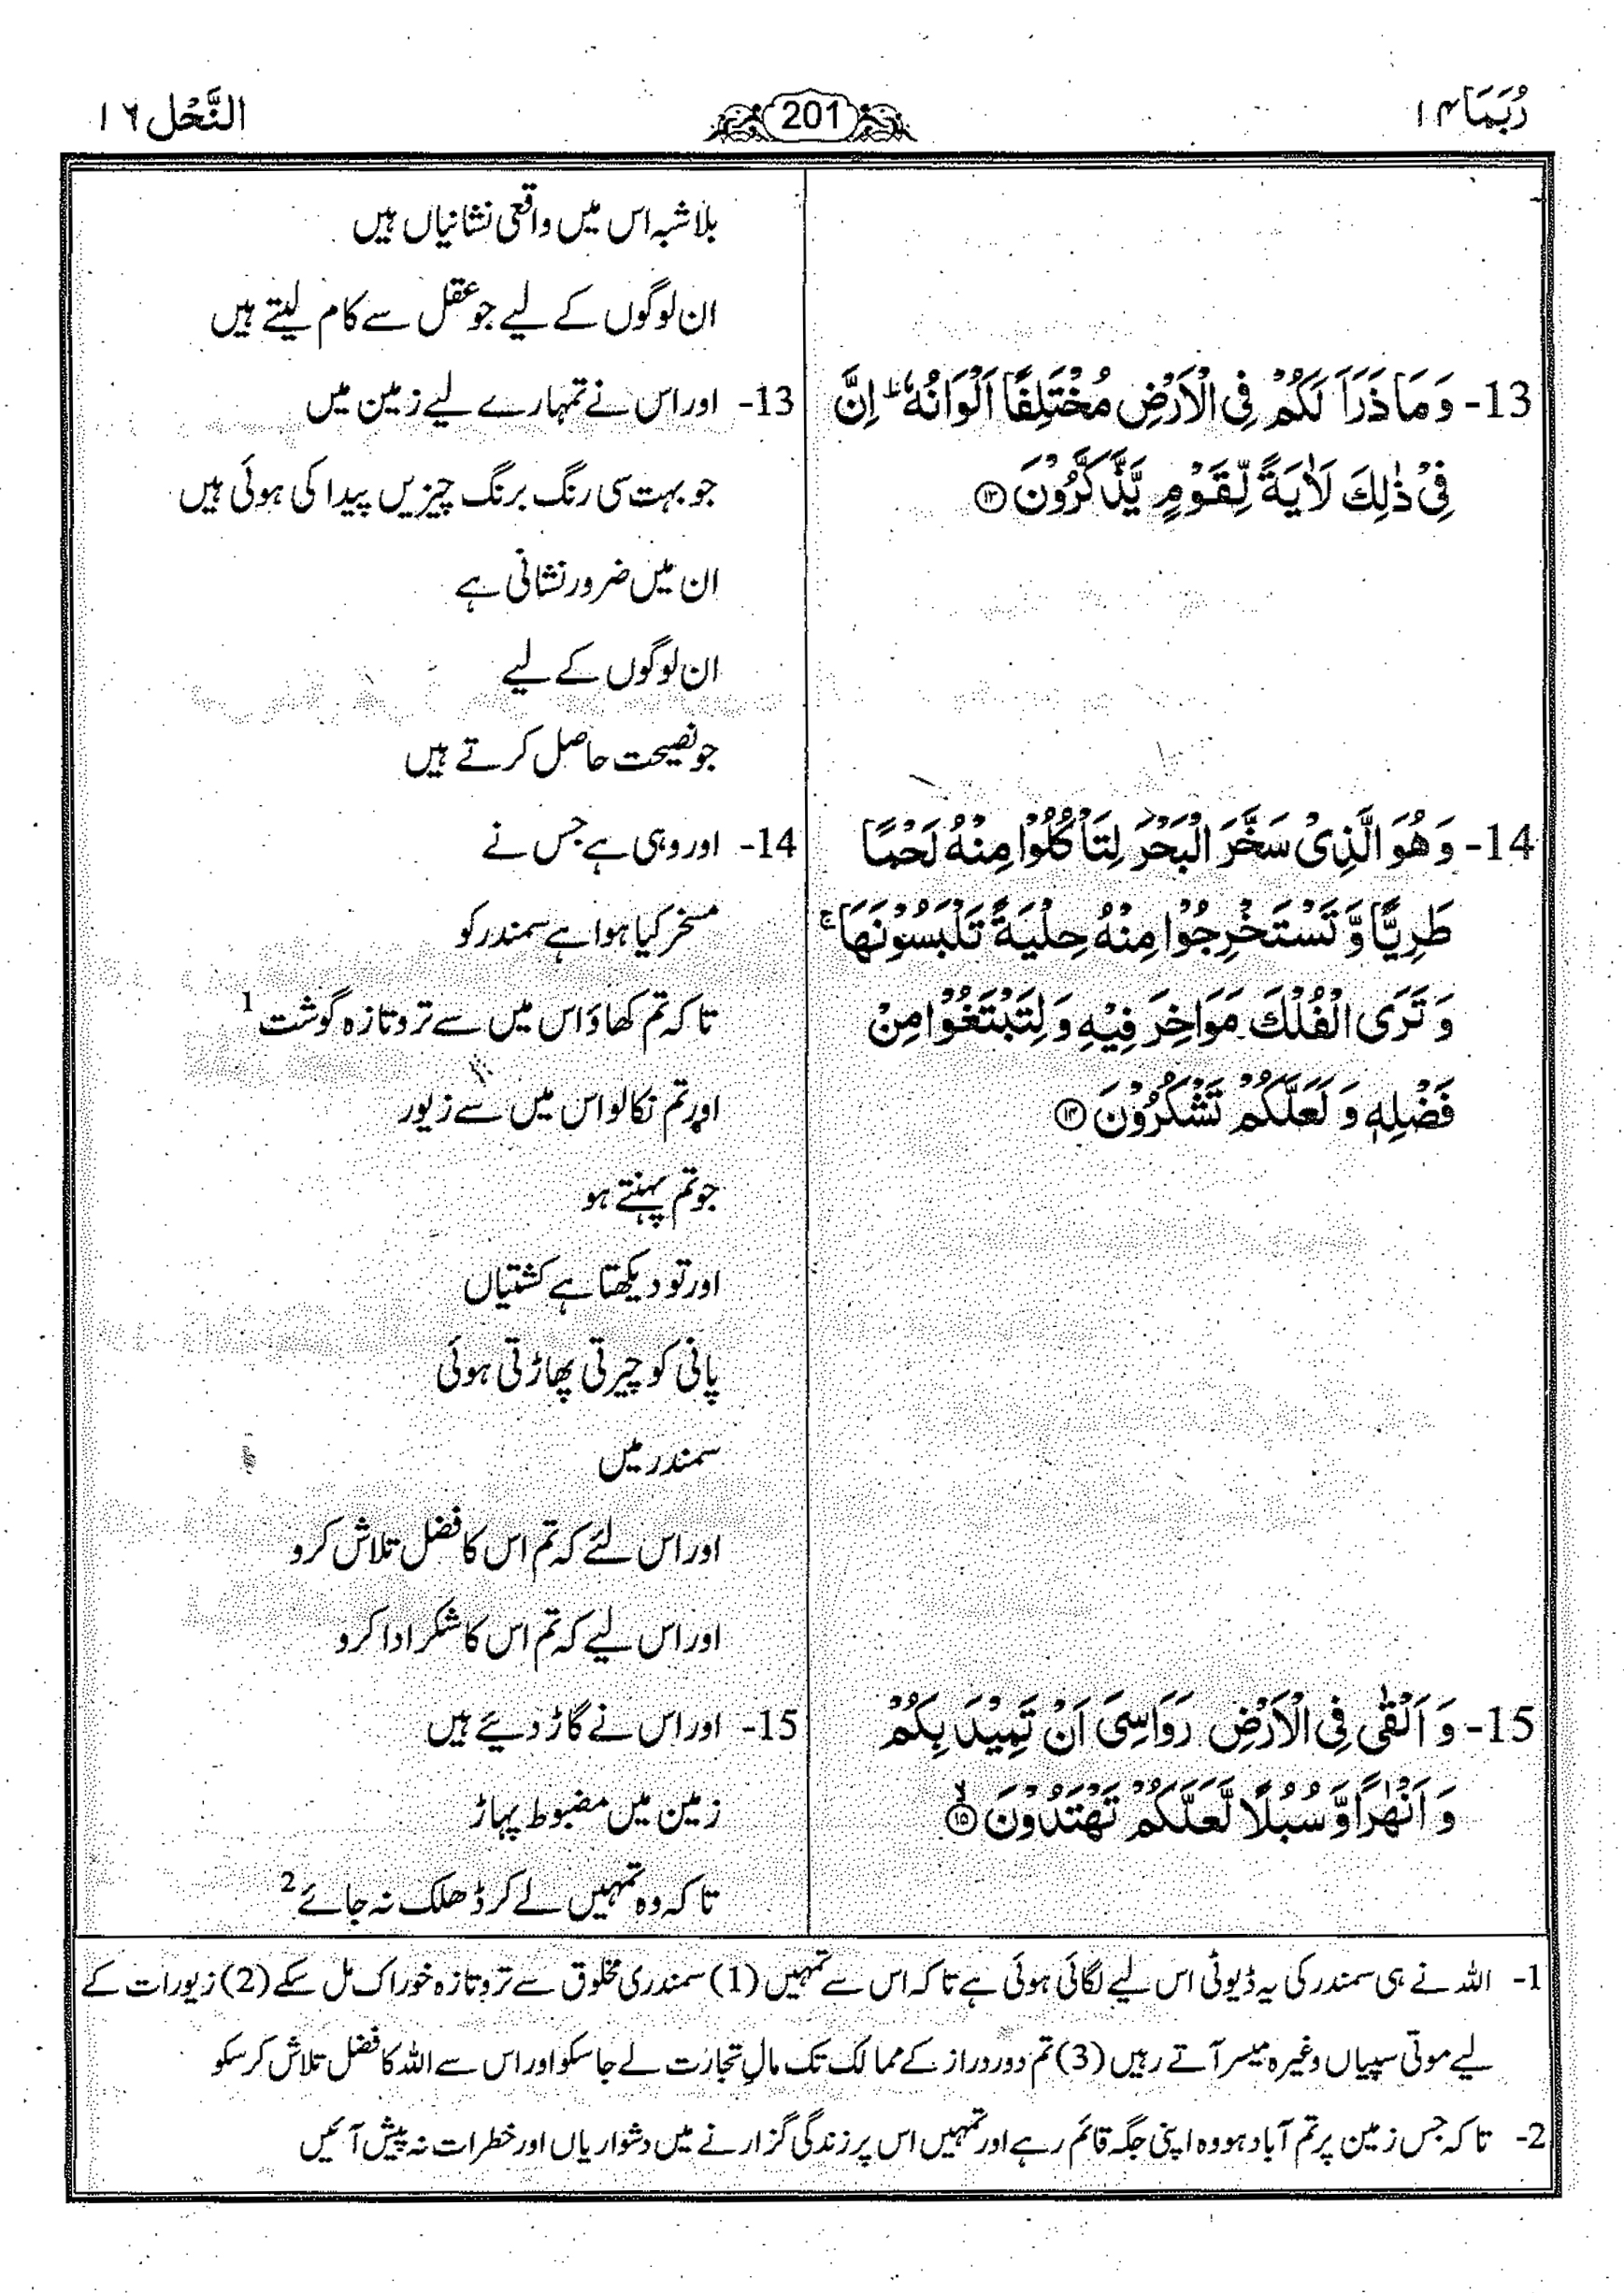 رُبَمَا ۱۴
201
النَّحْل ۱۶
بلاشبہ اس میں واقعی نشانیاں ہیں
ان لوگوں کے لیے جو عقل سے کام لیتے ہیں
13- وَمَا ذَرَاَ لَكُمْ فِی الْاَرْضِ مُخْتَلِفًا اَلْوَانُهٗ ؕ اِنَّ
فِیْ ذٰلِكَ لَاٰیَةً لِّقَوْمٍ یَّذَّكَّرُوْنَ ۝۱۳
13- اور اس نے تمہارے لیے زمین میں
جو بہت سی رنگ برنگ چیزیں پیدا کی ہوئی ہیں
ان میں ضرور نشانی ہے
ان لوگوں کے لیے
جو نصیحت حاصل کرتے ہیں
14- وَهُوَ الَّذِیْ سَخَّرَ الْبَحْرَ لِتَاْكُلُوْا مِنْهُ لَحْمًا
طَرِیًّا وَّ تَسْتَخْرِجُوْا مِنْهُ حِلْیَةً تَلْبَسُوْنَهَا ۚ
وَ تَرَى الْفُلْكَ مَوَاخِرَ فِیْهِ وَ لِتَبْتَغُوْا مِنْ
فَضْلِهٖ وَ لَعَلَّكُمْ تَشْكُرُوْنَ ۝۱۴
14- اور وہی ہے جس نے
مسخر کیا ہوا ہے سمندر کو
تاکہ تم کھاؤ اس میں سے تروتازہ گوشت 1
اور تم نکالو اس میں سے زیور
جو تم پہنتے ہو
اور تو دیکھتا ہے کشتیاں
پانی کو چیرتی پھاڑتی ہوئی
سمندر میں
اور اس لئے کہ تم اس کا فضل تلاش کرو
اور اس لیے کہ تم اس کا شکر ادا کرو
15- وَ اَلْقٰى فِی الْاَرْضِ رَوَاسِیَ اَنْ تَمِیْدَ بِكُمْ
وَ اَنْهٰرًا وَّ سُبُلًا لَّعَلَّكُمْ تَهْتَدُوْنَ ۙ۝۱۵
15- اور اس نے گاڑ دیئے ہیں
زمین میں مضبوط پہاڑ
تاکہ وہ تمہیں لے کر ڈھلک نہ جائے 2
1- اللہ نے ہی سمندر کی یہ ڈیوٹی اس لیے لگائی ہوئی ہے تاکہ اس سے تمہیں (1) سمندری مخلوق سے تروتازہ خوراک مل سکے (2) زیورات کے
لیے موتی سپیاں وغیرہ میسر آتے رہیں (3) تم دور دراز کے ممالک تک مالِ تجارت لے جا سکو اور اس سے اللہ کا فضل تلاش کر سکو
2- تاکہ جس زمین پر تم آباد ہو وہ اپنی جگہ قائم رہے اور تمہیں اس پر زندگی گزارنے میں دشواریاں اور خطرات نہ پیش آئیں